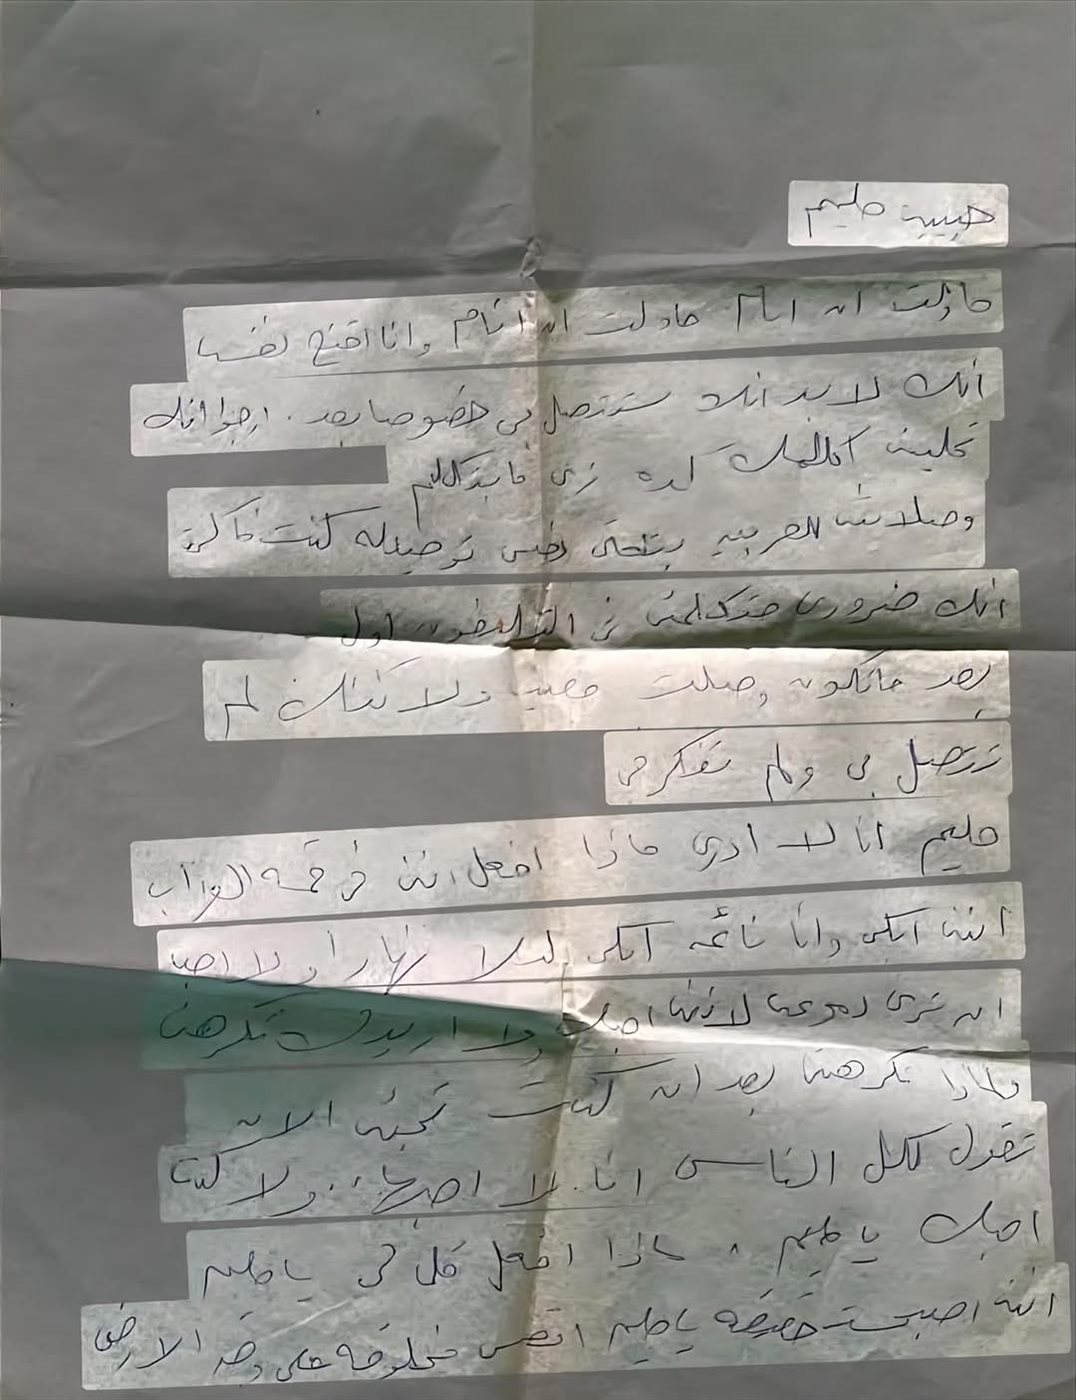 حبيبى حليم
حاولت ان انام حاولت ان انام وانا اقنع نفسى
انك لابد انك ستتصل بى خصوصا بعد . ارجوا انك
تخلينى اكلمك كده زى مابتكلم
وصلاتنى للعربيه بتاعتى نفس توصيله كنت فاكره
انك ضرورى حتكلمنى فى التليفون اول
بعد ماتكون وصلت ولاكنك لم
تتصل بى ولم تفكر فى
حليم انا لا ادرى ماذا افعل اننى فى قمة العذاب
اننى ابكى وانا نائمه ابكى ليلا نهارا ولا احب
ان ترى دموعى لاننى احبك ولا اريدك تكرهنى
ولماذا تكرهنى بعد ان كنت تحبنى الان
تقول لكل الناس انا لا احبها .. ولا كنت
احبك يا حليم ، ماذا افعل قل لى يا حليم
اننى اصبحت حقيقه يا حليم اتعس مخلوقه على وجه الارض